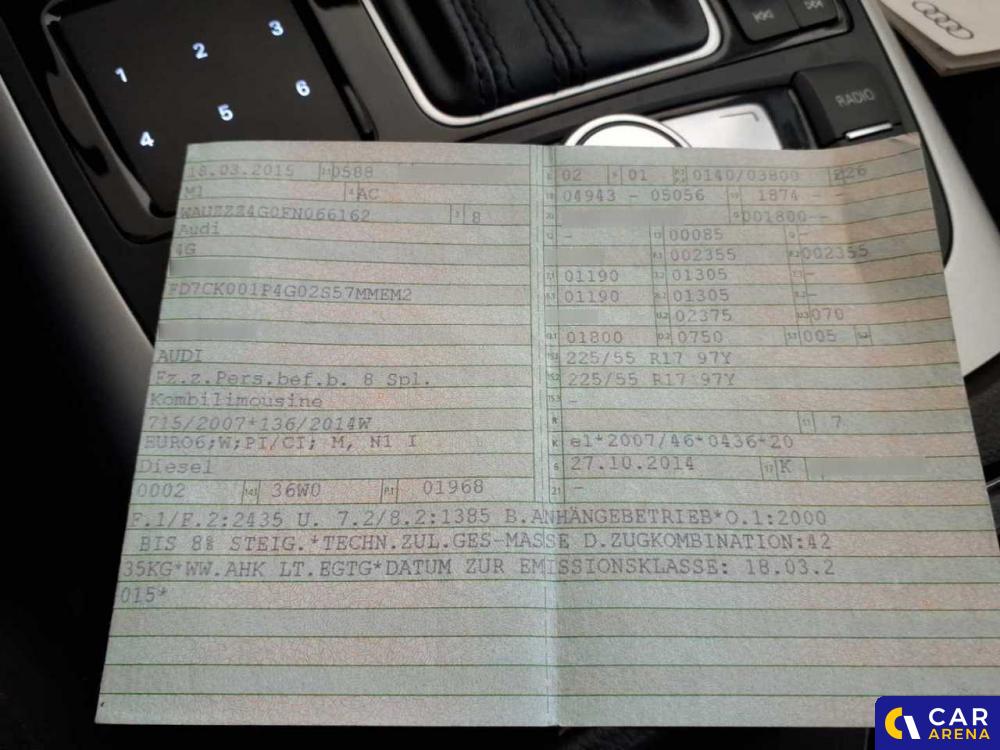 1 2 3
4 5 6
RADIO
18.03.2015 0588
M1 AC
WAUZZZ4G0FN066162 8
Audi
4G
FD7CK001P4G02S57MMEM2
AUDI
Fz.z.Pers.bef.b. 8 Spl.
Kombilimousine
715/2007*136/2014W
EURO6;W;PI/CI; M, N1 I
Diesel
0002 14.1 36W0 P.1 01968
02 01 0140/03800 226
04943 - 05056 1874 -
001800--
- 00085 -
002355 002355
01190 01305 -
01190 01305 -
02375 070
01800 0750 005
225/55 R17 97Y
225/55 R17 97Y
-
R 11 7
K e1*2007/46*0436*20
6 27.10.2014 17 K
21 -
F.1/F.2:2435 U. 7.2/8.2:1385 B.ANHÄNGEBETRIEB*O.1:2000
BIS 8% STEIG.*TECHN.ZUL.GES-MASSE D.ZUGKOMBINATION:42
35KG*WW.AHK LT.EGTG*DATUM ZUR EMISSIONSKLASSE: 18.03.2
015*
CAR
ARENA